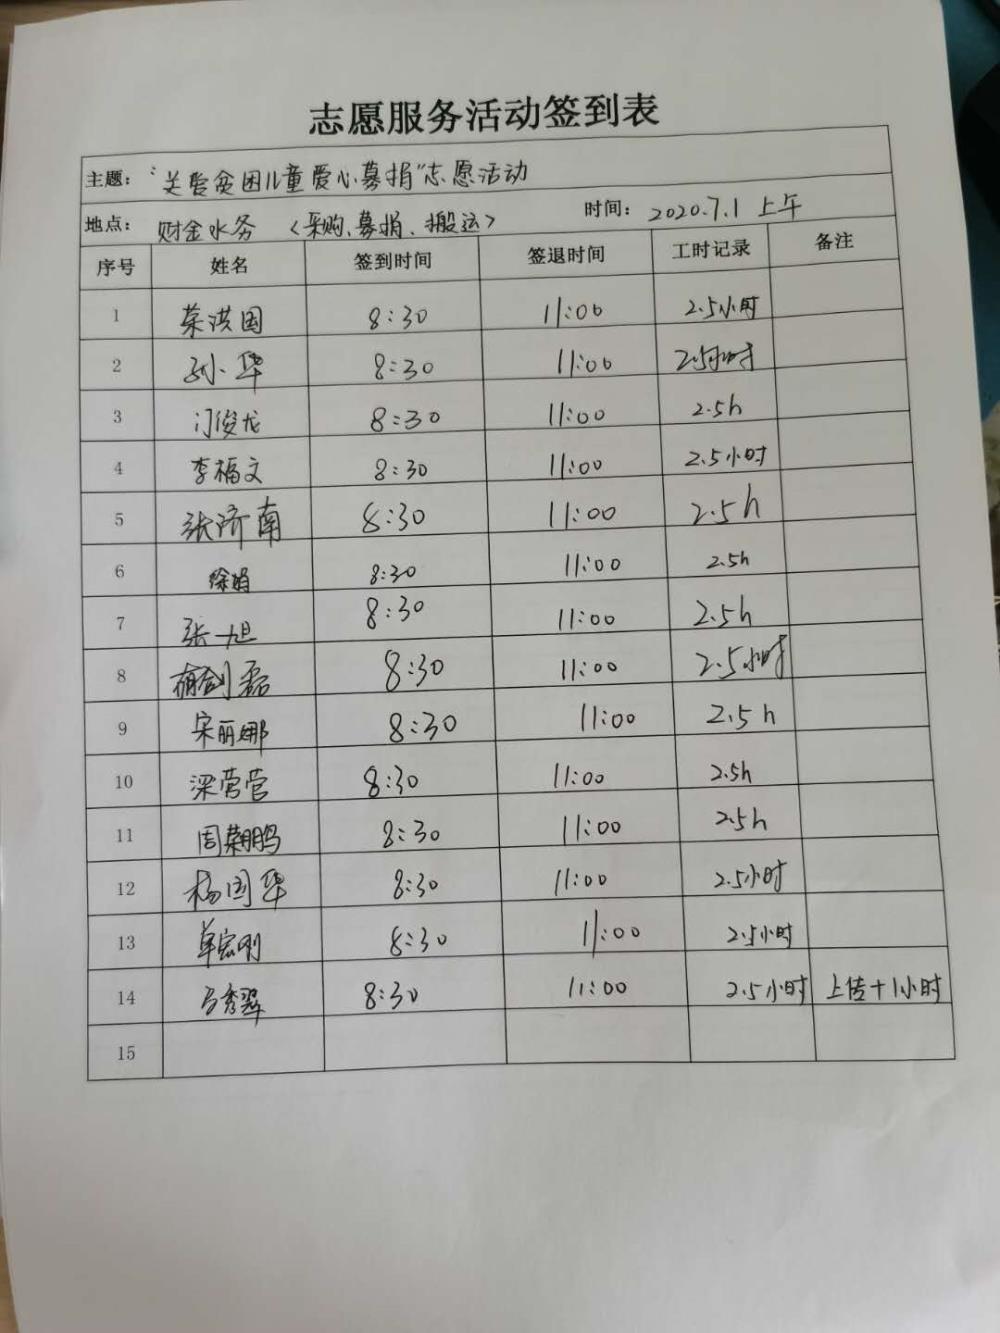 志愿服务活动签到表
主题：“关爱贫困儿童爱心募捐”志愿活动
地点：财金水务〈采购、募捐、搬运〉 时间：2020.7.1 上午
序号 姓名 签到时间 签退时间 工时记录 备注
1 荣洪国 8:30 11:00 2.5小时
2 孙华 8:30 11:00 2.5小时
3 门俊龙 8:30 11:00 2.5h
4 李福文 8:30 11:00 2.5小时
5 张济南 8:30 11:00 2.5h
6 徐娟 8:30 11:00 2.5h
7 张旭 8:30 11:00 2.5h
8 8:30 11:00 2.5小时
9 宋丽娜 8:30 11:00 2.5h
10 梁营营 8:30 11:00 2.5h
11 周翱鹏 8:30 11:00 2.5h
12 杨国华 8:30 11:00 2.5小时
13 单宏刚 8:30 11:00 2.5小时
14 马秀翠 8:30 11:00 2.5小时 上传+1小时
15